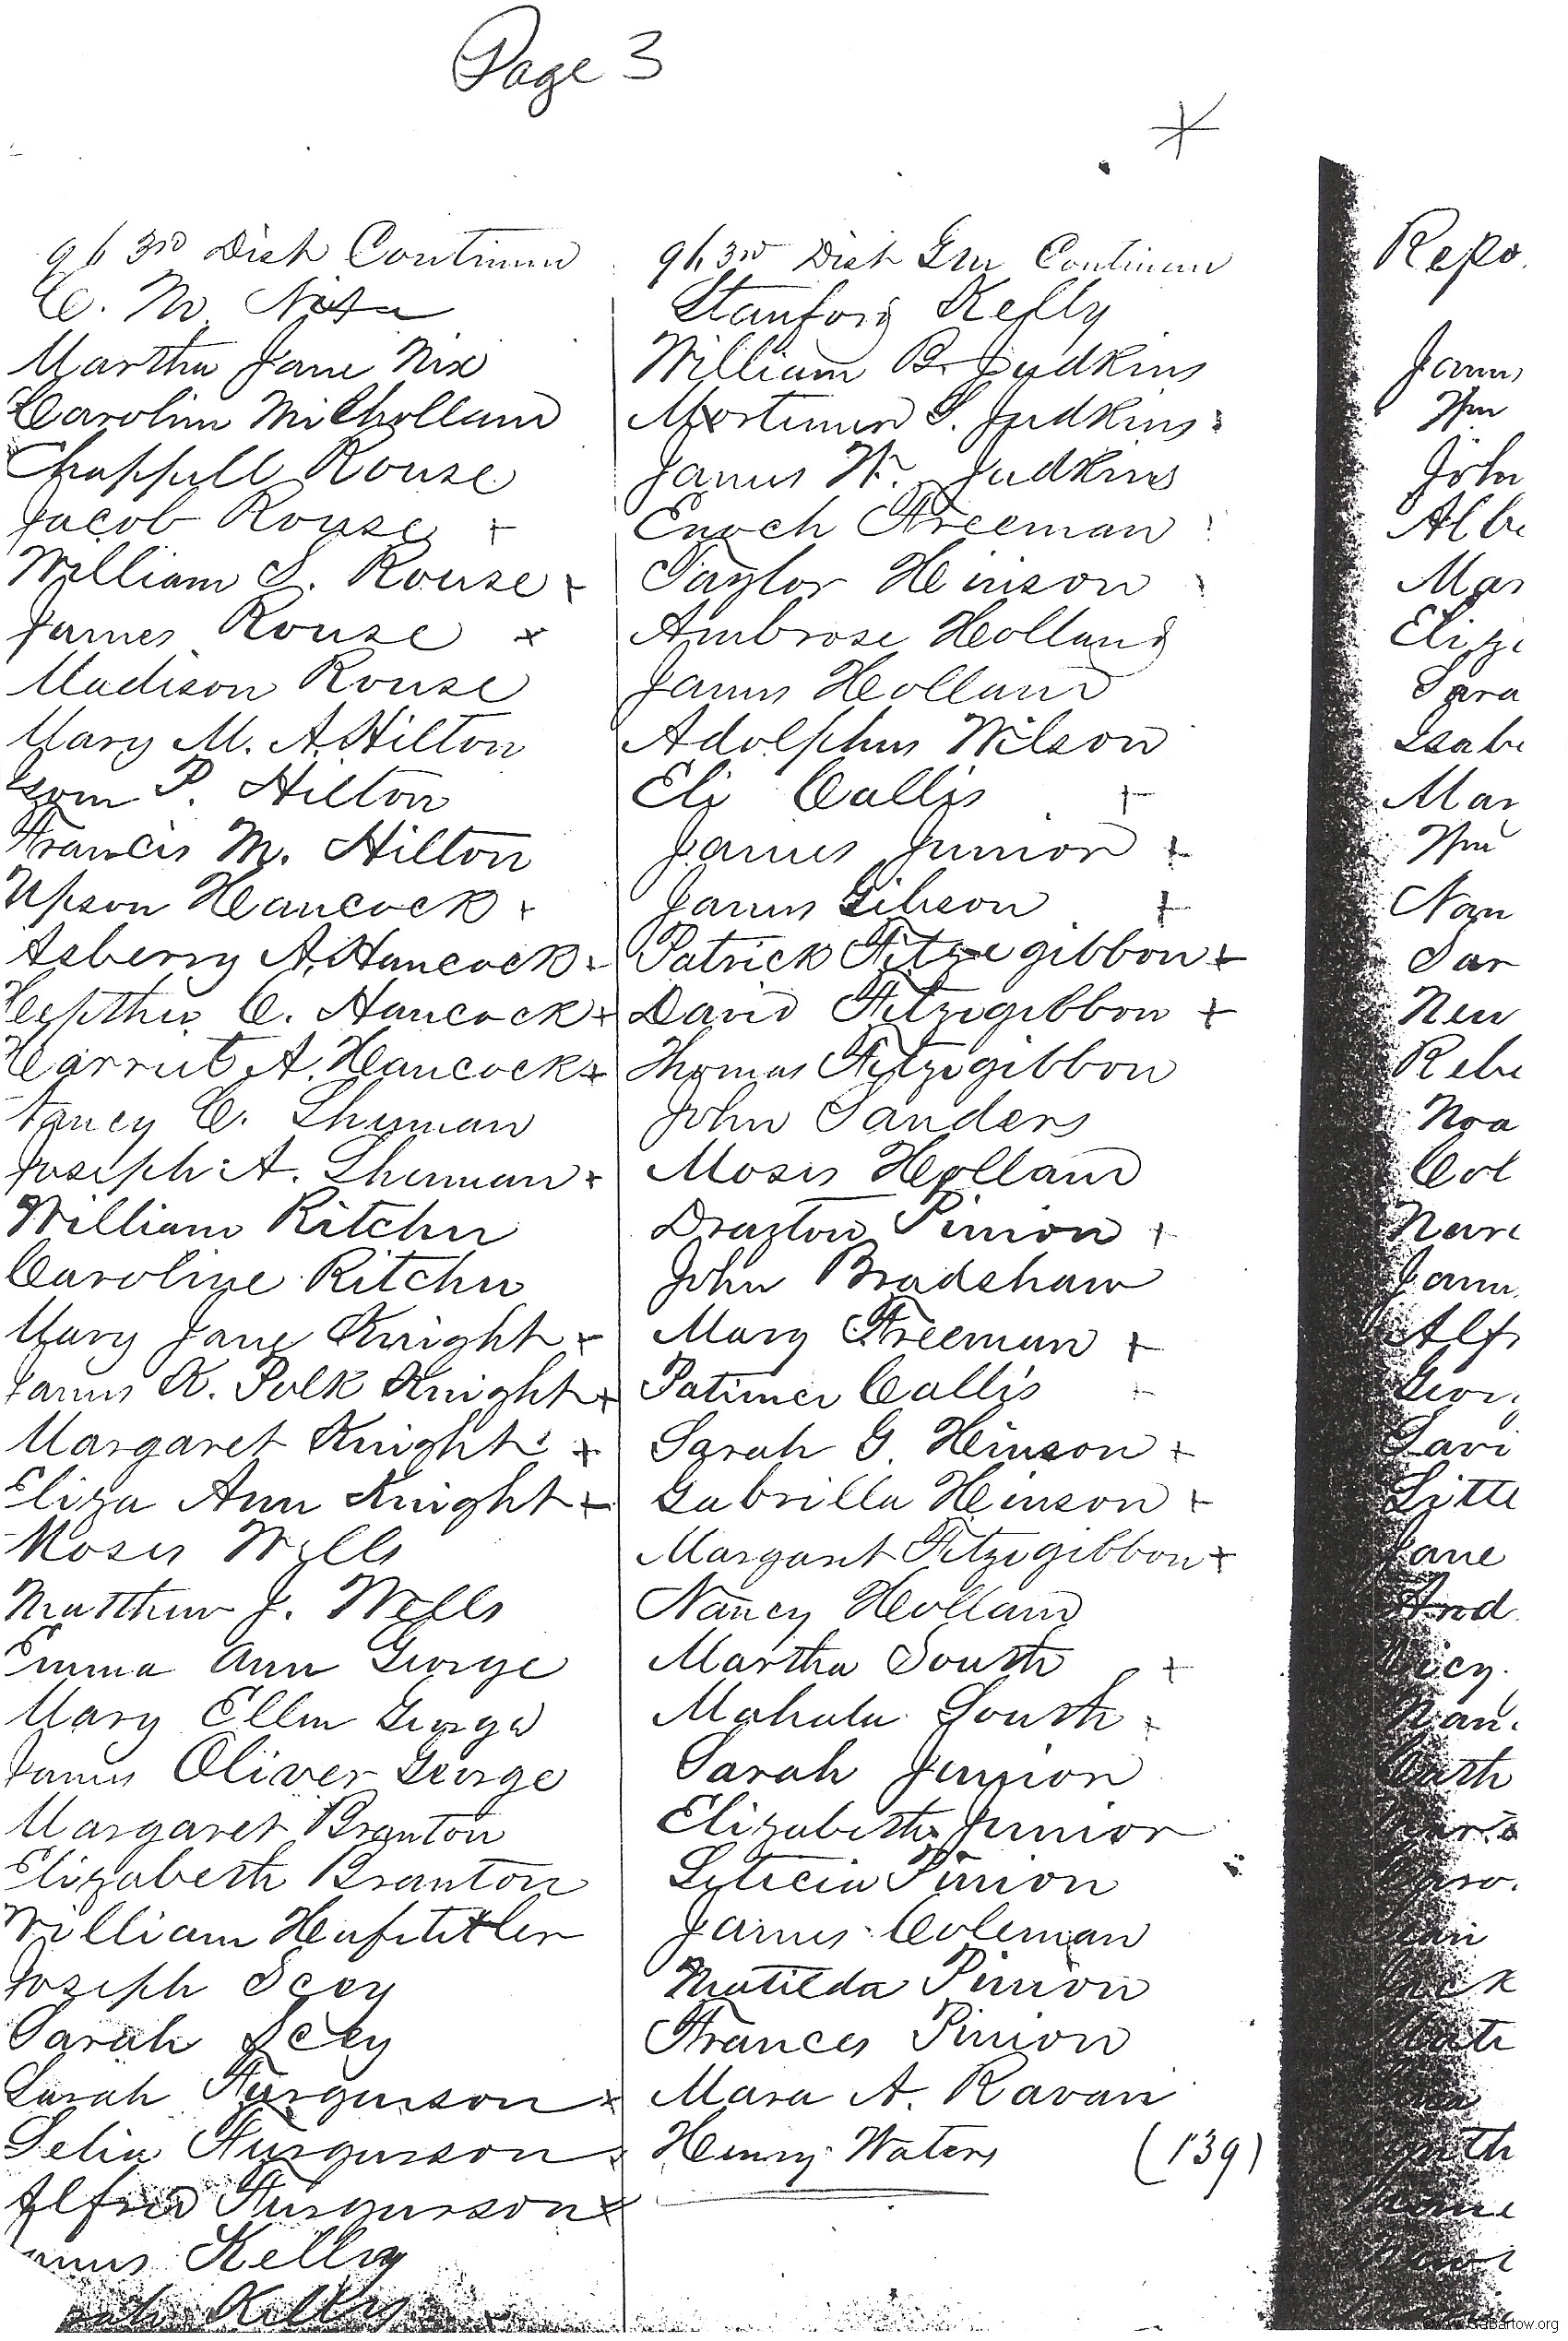 Page 3
963rd Dist Continued
C. M. Nix
Martha Jane Nix
Carolin Milholland
Chappell Rouse
Jacob Rouse +
William S. Rouse +
James Rouse x
Madison Rouse
Mary M. A. Hilton
Isom P. Hilton
Francis M. Hilton
Upson Hancock +
Asberry A. Hancock +
C. Hancock +
Harriet A. Hancock +
Nancy C. Shuman
Joseph A. Shuman +
William Ritchie
Caroline Ritchie
Mary Jane Knight +
James K. Polk Knight +
Margaret Knight +
Eliza Ann Knight +
Moses Wells
Matthew J. Wells
Emma Ann George
Mary Ellen George
James Oliver George
Margaret Branton
Elizabeth Branton
William Hufstetler
Joseph Scey
Sarah Scey
Sarah Furgurson x
Selia Furgurson x
Alfred Furgurson x
James Kelly
Kelly
963rd Dist G.M. Continued
Stanford Kelly
William B. Judkins
Mortimer S. Judkins
James W. Judkins
Enoch Freeman
Taylor Hinson
Ambrose Holland
James Holland
Adolphus Wilson
Eli Callis +
James Junior +
James Gibson +
Patrick Fitzegibbon +
David Fitzegibbon +
Thomas Fitzegibbon
John Sanders
Moses Holland
Drayton Pinion +
John Bradshaw
Mary Freeman +
Patimer Callis +
Sarah G. Hinson +
Gabrilla Hinson +
Margaret Fitzegibbon +
Nancy Holland
Martha South +
Mahala South
Sarah Junior
Elizabeth Junior
Leticia Pinion
James Coleman
Matilda Pinion
Frances Pinion
Mara A. Ravan
Henry Waters (139)
Repo
James
Wm
John
Albe
Mar
Eliz
Sara
Isabe
Mar
Wm
Nan
Sar
New
Rebe
Noa
Col
Jam
Alf
Geor
Savi
Litte
Jane
And
Vicy
Nan